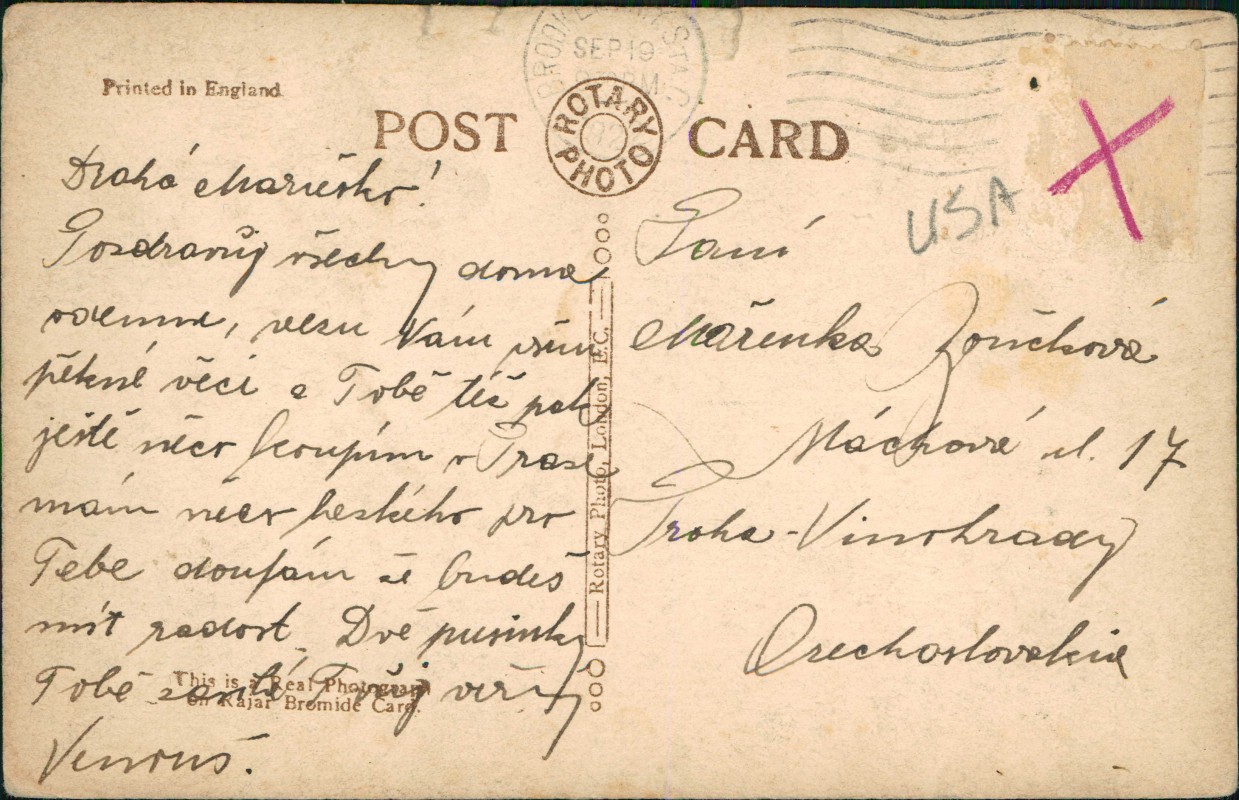 Printed in England
POST CARD
ROTARY PHOTO
SEP 19
USA
Drahá Mařičko!
Pozdravuj všechny doma
odemne, vezu Vám
pěkné věci a Tobě též pak
ještě něco koupím v Praze
mám něco heského pro
Tebe doufám že budeš
mít radost. Dvě pusinky
Tobě Tvůj věrný
Venouš.
This is a Real Photograph
on Rajar Bromide Card.
Rotary Photo, London, E.C.
Paní
Mařenka Zoučková
Máchová ul. 17
Praha-Vinohrady
Czechoslovakia